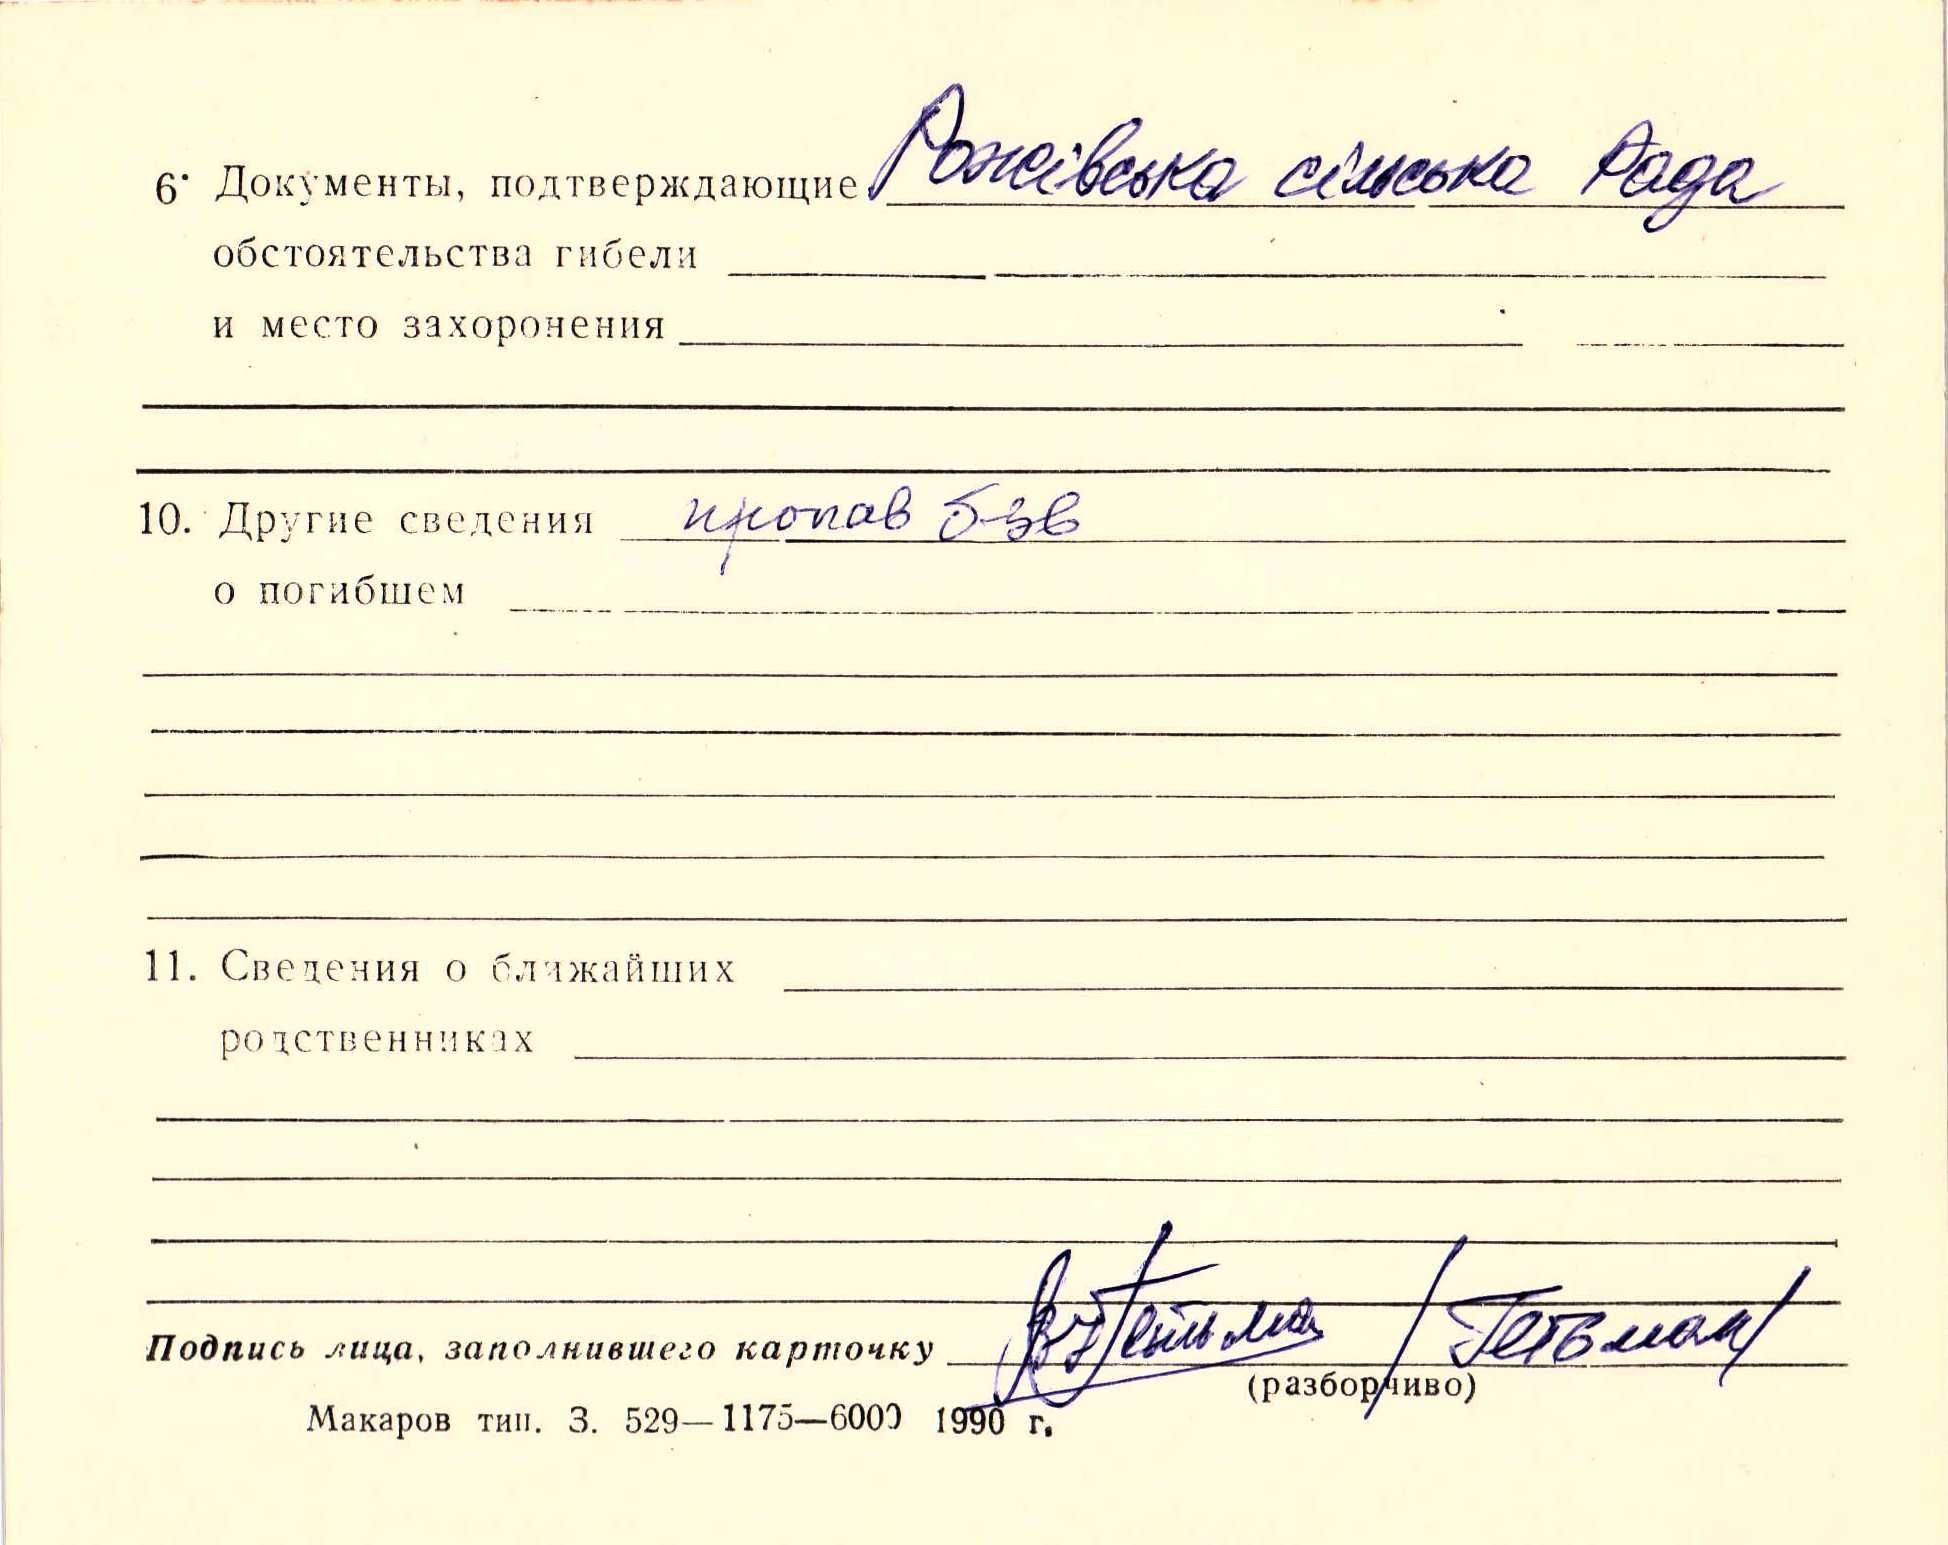 6. Документы, подтверждающие Рожівська сільська Рада
обстоятельства гибели
и место захоронения
10. Другие сведения пропав б-зв
о погибшем
11. Сведения о ближайших
родственниках
Подпись лица, заполнившего карточку /Гетьман/
(разборчиво)
Макаров тип. З. 529—1175—6000 1990 г.